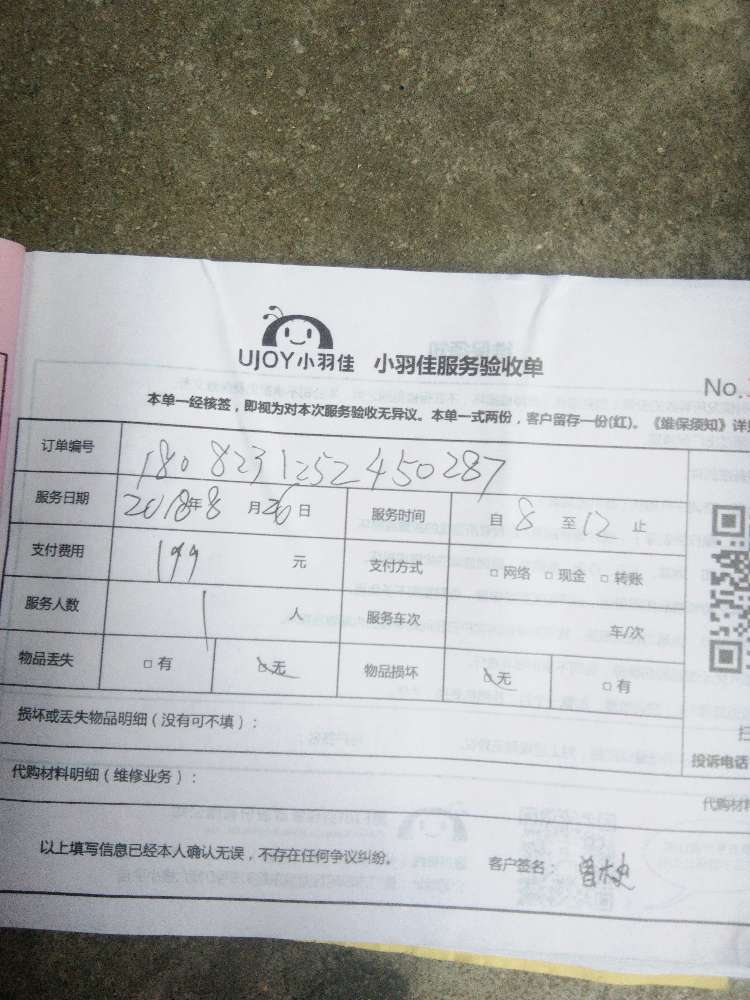 UJOY小羽佳 小羽佳服务验收单
No.
本单一经核签，即视为对本次服务验收无异议。本单一式两份，客户留存一份(红)。《维保须知》详
订单编号 1808231252450287
服务日期 2018年8月26日 服务时间 自8至12止
支付费用 199元 支付方式 □网络 □现金 □转账
服务人数 1人 服务车次 车/次
物品丢失 □有 □无 物品损坏 □无 □有
损坏或丢失物品明细（没有可不填）：
投诉电话
代购材料明细（维修业务）：
代购材
以上填写信息已经本人确认无误，不存在任何争议纠纷。 客户签名：